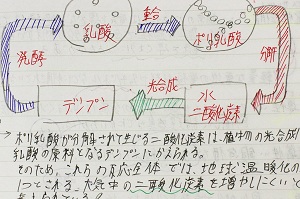 重合
乳酸
ポリ乳酸
発酵
分解
光合成
デンプン
水
二酸化炭素
→ ポリ乳酸が分解されて生じる二酸化炭素は、植物の光合成
乳酸の原料となるデンプンにかえられる。
そのため、これらの反応全体では、地球温暖化の
1つとされる、大気中の二酸化炭素を増やしにくいと